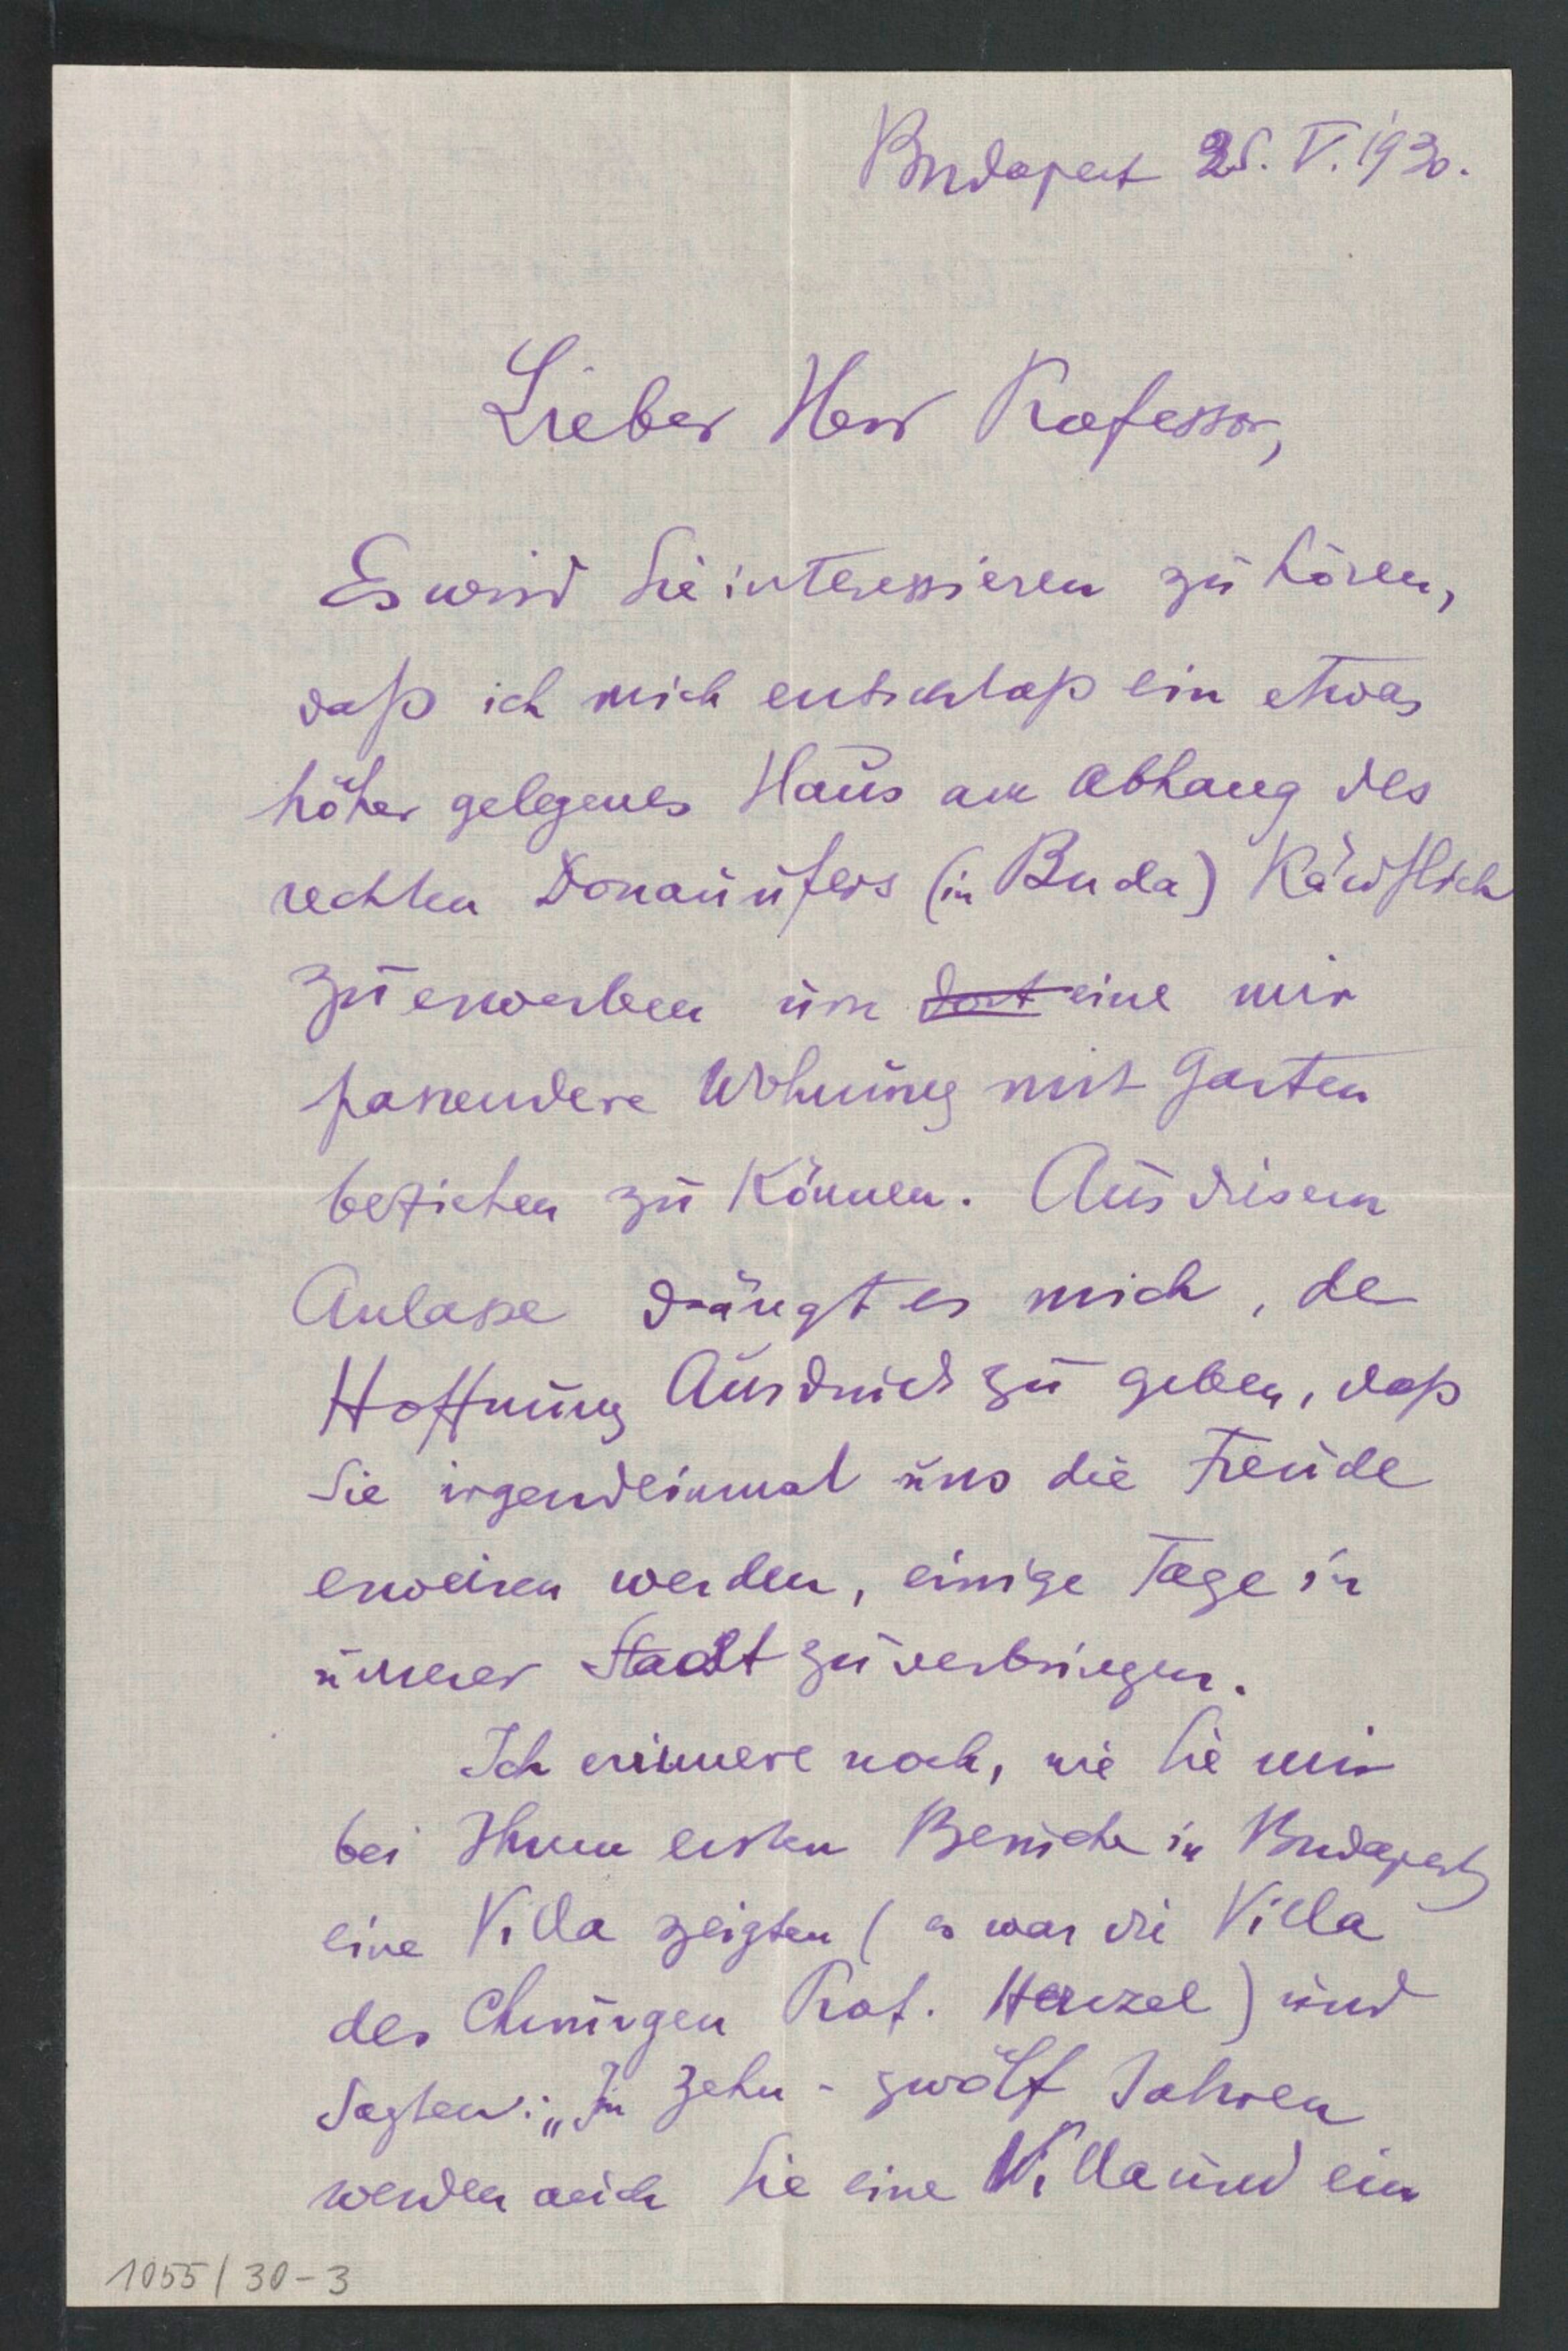 Budapest 25. V. 1930.
Lieber Herr Professor,
Es wird Sie interessieren zu hören,
daß ich mich entschloß ein etwas
höher gelegenes Haus am Abhang des
rechten Donauufers (in Buda) Käuflich
zu erwerben um dort eine mir
passendere Wohnung mit Garten
beziehen zu Können. Aus diesem
Anlasse drängt es mich, der
Hoffnung Ausdruck zu geben, daß
Sie irgendeinmal uns die Freude
erweisen werden, einige Tage in
unserer Stadt zu verbringen.
Ich erinnere noch, wie Sie mir
bei Ihrem ersten Besuche in Budapest
eine Villa zeigten (es war die Villa
des Chirurgen Prof. Herczel) und
Sagten: „In zehn - zwölf Jahren
werden auch Sie eine Villa und ein
1055/30-3